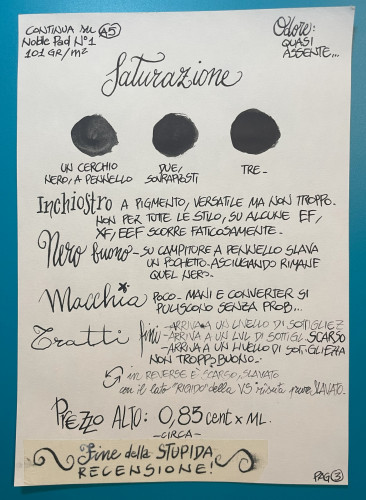 CONTINUA SU A5
Noble Pad N°1
101 GR/m²
Odore:
QUASI
ASSENTE...
Saturazione
UN CERCHIO
NERO, A PENNELLO
DUE,
SOVRAPPOSTI
TRE-
Inchiostro A PIGMENTO, VERSATILE MA NON TROPPO.
NON PER TUTTE LE STILO, SU ALCUNE EF,
XF, EEF SCORRE FATICOSAMENTE-
Nero buono- SU CAMPITURE A PENNELLO SLAVA
UN POCHETTO. ASCIUGANDO RIMANE
QUEL NERO.
Macchia POCO- MANI E CONVERTER SI
PULISCONO SENZA PROB...
Tratti fini- ARRIVA A UN LIVELLO DI SOTTIGLIEZ
ARRIVA A UN LVL DI SOTTIGL. SCARSO
ARRIVA A UN LIVELLO DI SOTTIGLIEZZA
NON TROPP, BUONO-
in REVERSE È SCARSO, SLAVATO
con il lato "RIGIDO" della VS risulta pure SLAVATO-
PREZZO ALTO: 0,83 cent x ML.
-CIRCA-
Fine della STUPIDA
RECENSIONE!
PAG 3